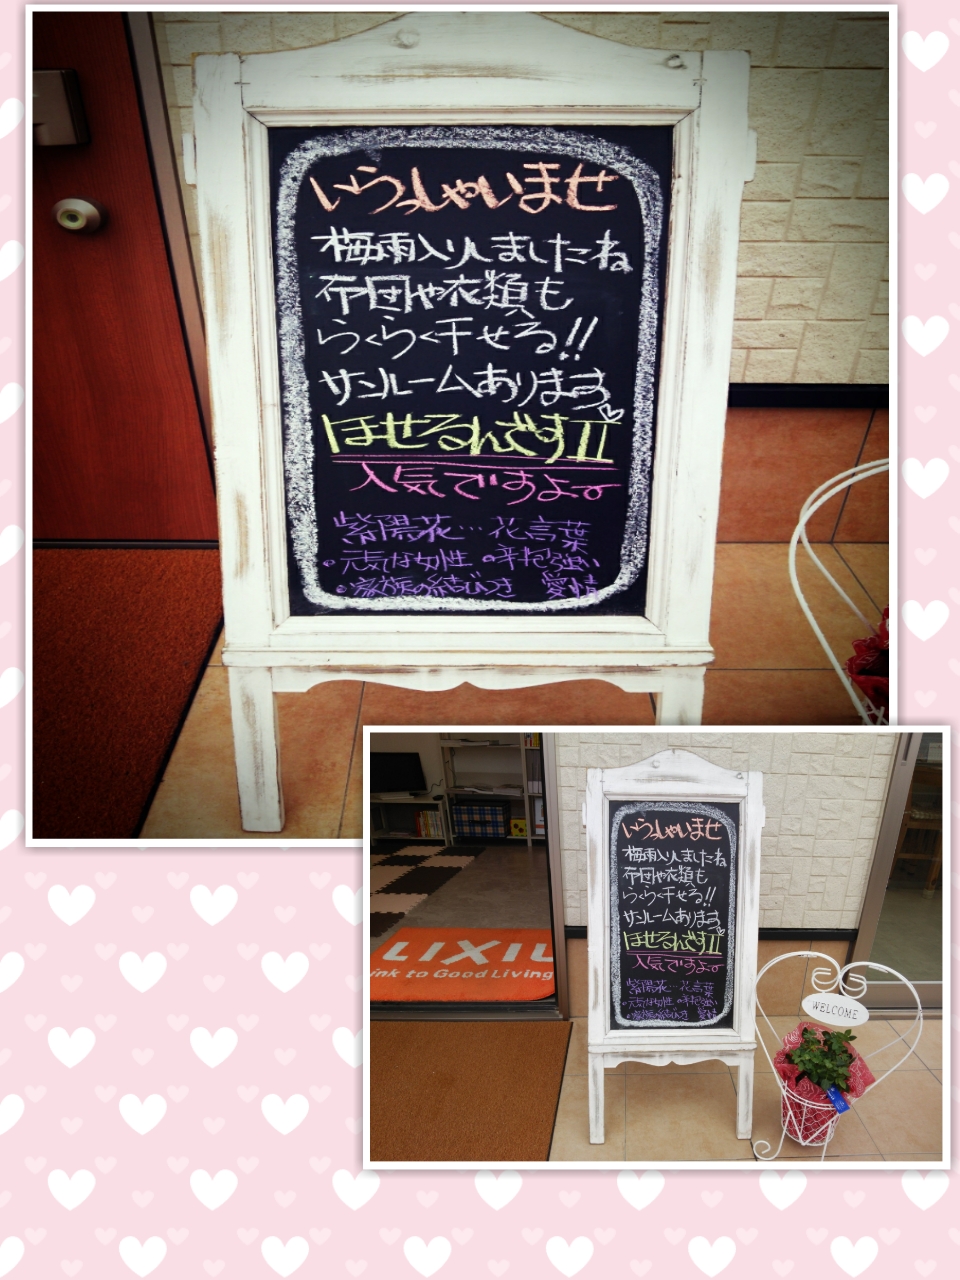 いらっしゃいませ
梅雨入りしましたね
布団や衣類も
らくらく干せる!!
サンルームあります♡
ほせるんですⅡ
人気ですよー
紫陽花…花言葉
•元気な女性 •辛抱強い
•家族の結びつき 愛情
LIXIL
ink to Good Living
いらっしゃいませ
梅雨入りしましたね
布団や衣類も
らくらく干せる!!
サンルームあります♡
ほせるんですⅡ
人気ですよー
紫陽花…花言葉
•元気な女性 •辛抱強い
•家族の結びつき 愛情
WELCOME